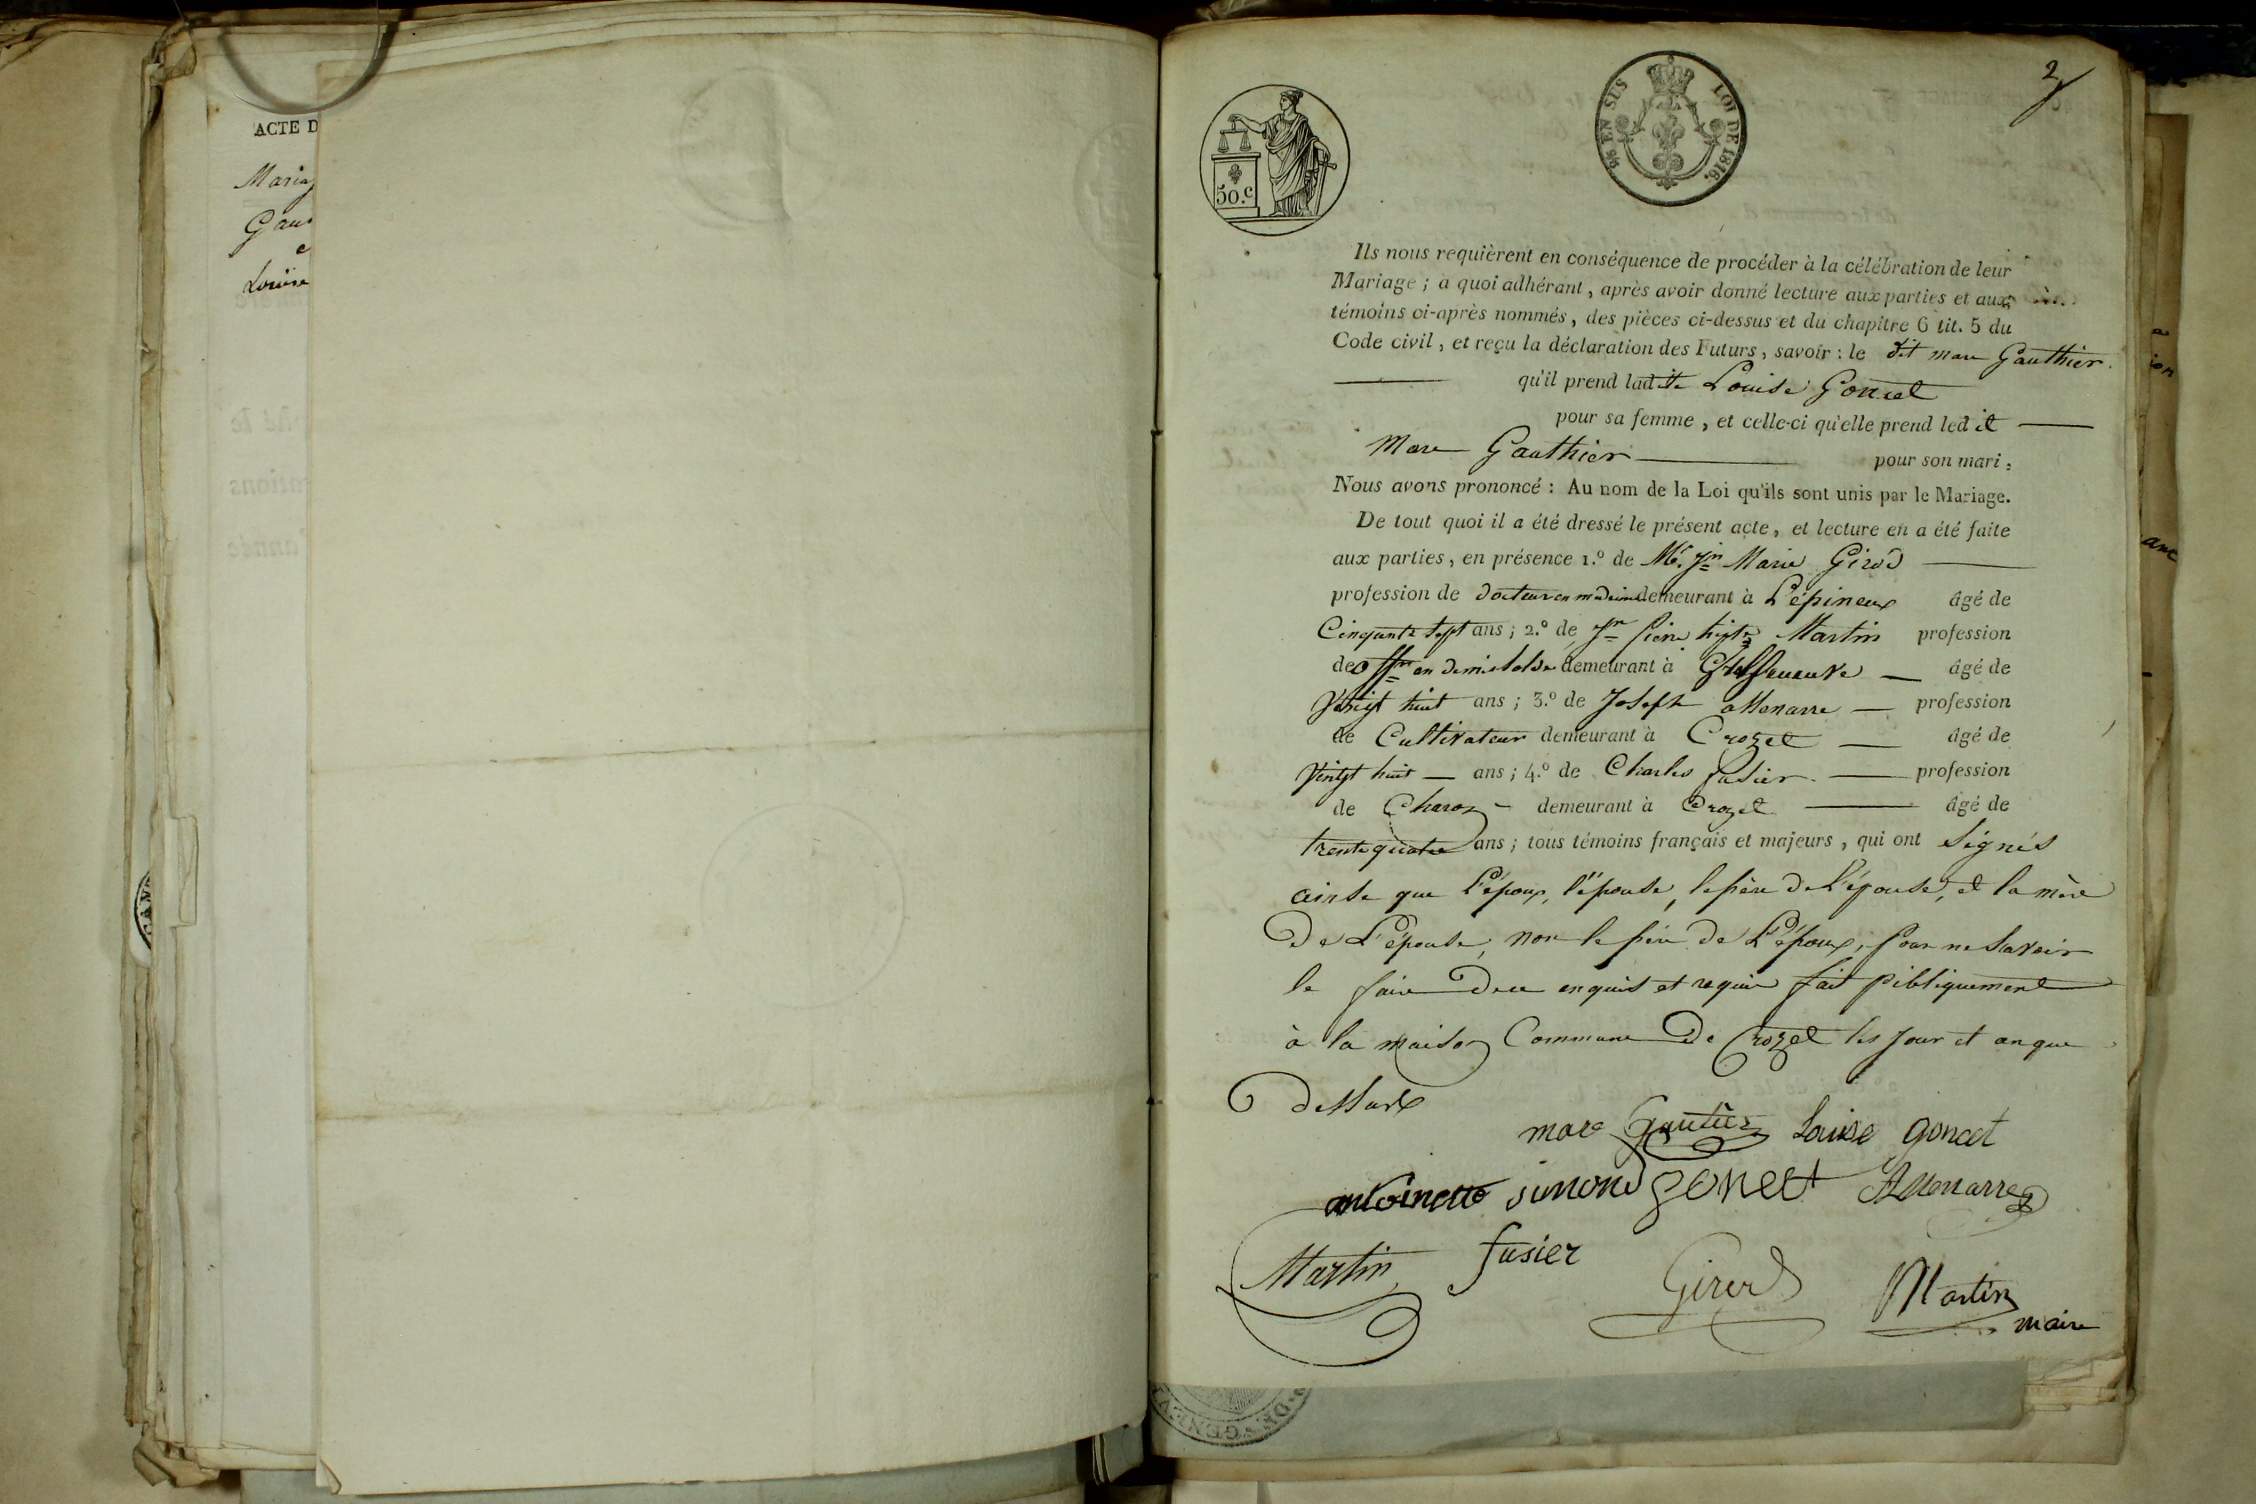 ACTE D
Maria
Gau
e
Louise
2
50.c
EN SUS
LOI DE 1816.
Ils nous requièrent en conséquence de procéder à la célébration de leur
Mariage ; a quoi adhérant, après avoir donné lecture aux parties et aux
témoins ci-après nommés, des pièces ci-dessus et du chapitre 6 tit. 5 du
Code civil, et reçu la déclaration des Futurs, savoir : le dit marc Gauthier.
qu'il prend ladite Louise Goncet
pour sa femme, et celle-ci qu'elle prend led it
Marc Gauthier pour son mari :
Nous avons prononcé : Au nom de la Loi qu'ils sont unis par le Mariage.
De tout quoi il a été dressé le présent acte, et lecture en a été faite
aux parties, en présence 1.º de Mr. Jn Marie Girod
profession de docteur en medecine demeurant à L'épineux âgé de
Cinquante sept ans ; 2.º de Jn Pierre Martin profession
de offr en demie solde demeurant à âgé de
Vingt huit ans ; 3.º de Joseph Allenarre profession
de Cultivateur demeurant à Crozet âgé de
Vingt huit ans ; 4.º de Charles fusier profession
de Charon demeurant à Crozet âgé de
trente quatre ans ; tous témoins français et majeurs, qui ont Signés
ainse que L'époux, l'épouse, le père de L'épouse, et la mère
De L'épouse, non le père de L'époux, pour ne Savoir
le faire De ce enquis et requis fait publiquement
à la maison Commune De Crozet les Jour et an que
Dessus
marc Gautier Louise goncet
antoinette simond goncet Allenarre
Martin fusier Girod Martin
maire
DE GENEV